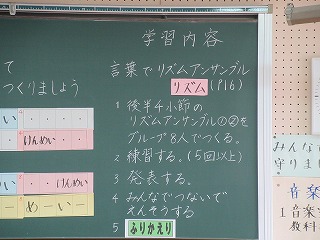 学習内容
言葉でリズムアンサンブル
リズム (P16)
1 後半4小節の
リズムアンサンブルの②を
グループ8人でつくる。
2 練習する。(5回以上)
3 発表する。
4 みんなでつないで
えんそうする
5 ふりかえり
て
つくりましょう
い
けんめい
けんめい
い
めーいー
みんなで
守りま
音楽
1 音楽